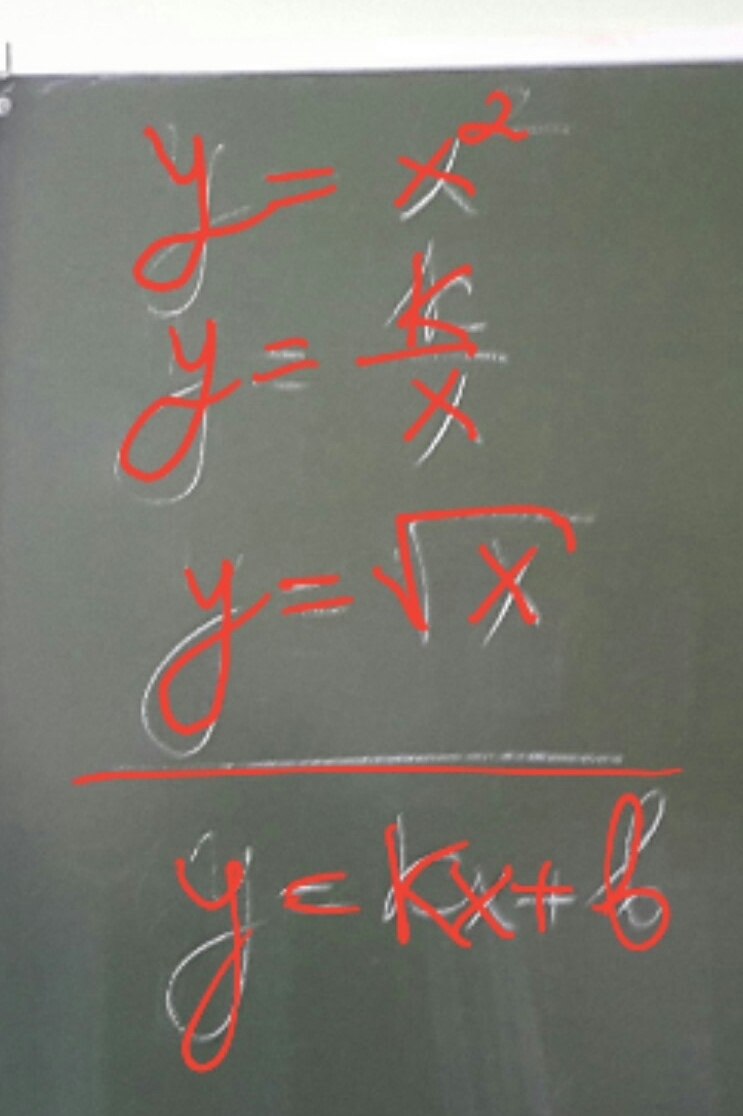 y = x²
y = k/x
y = √x
y = kx + b